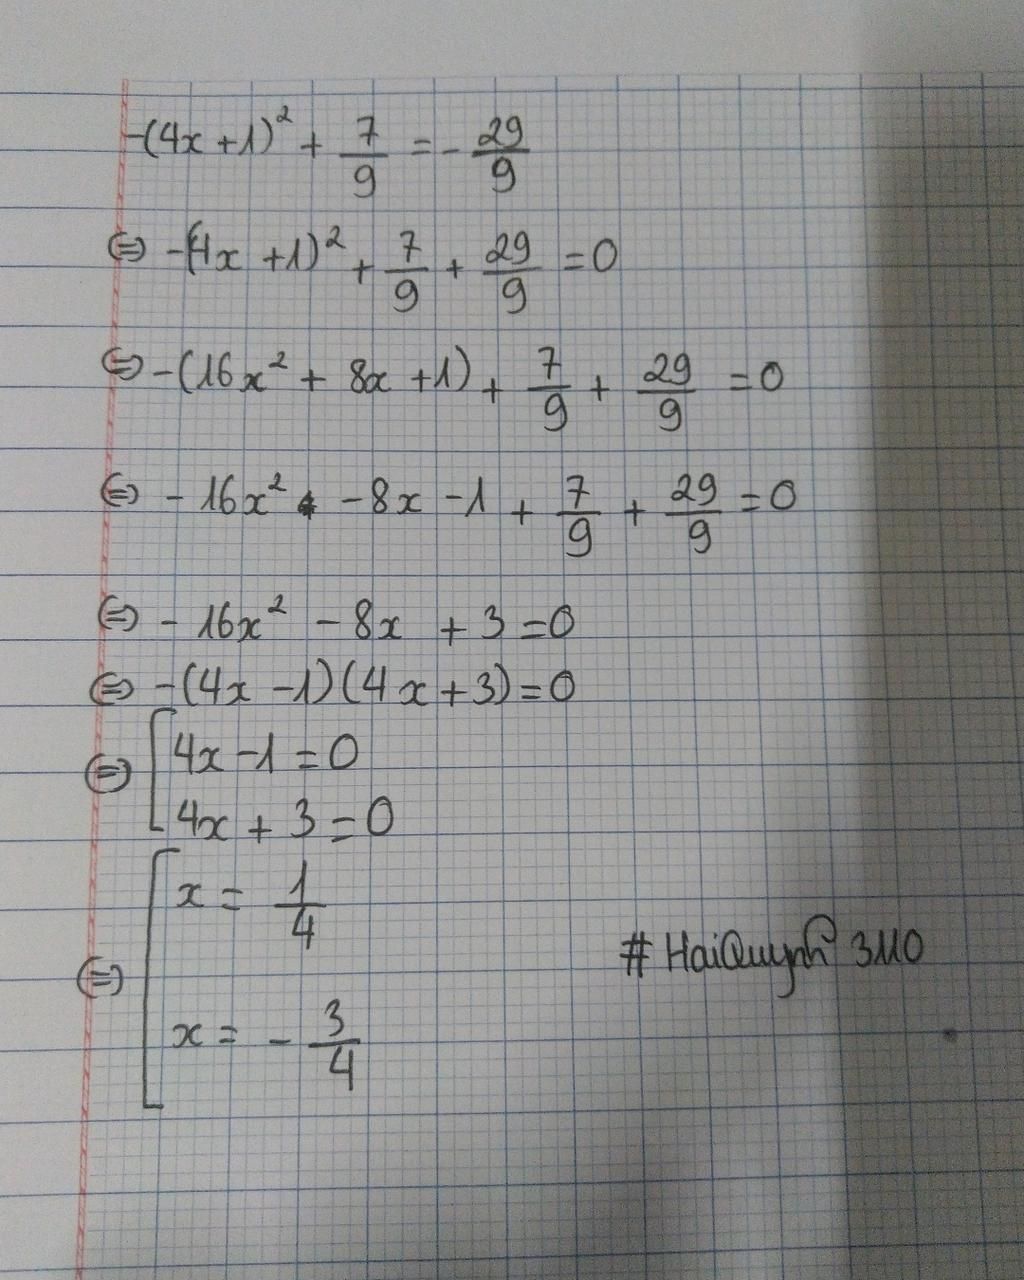 -(4x+1)² + 7/9 = - 29/9
⇔ -(4x+1)² + 7/9 + 29/9 = 0
⇔ -(16x² + 8x + 1) + 7/9 + 29/9 = 0
⇔ - 16x² - 8x - 1 + 7/9 + 29/9 = 0
⇔ - 16x² - 8x + 3 = 0
⇔ -(4x - 1)(4x + 3) = 0
⇔ [ 4x - 1 = 0
4x + 3 = 0
⇔ [ x = 1/4
x = - 3/4
# HaiQuynh 3110